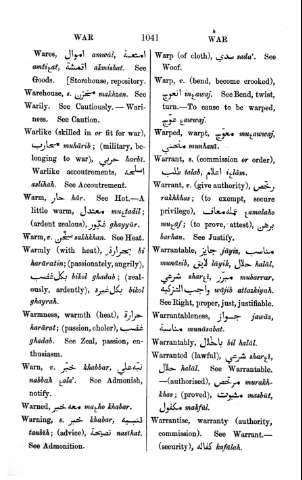 WAR 1041 WAR
Wares, امتعة, اموال amwál, u.
amtiʿat, اقمشة akmishat. See
Goods. [Storehouse, repository.
Warehouse, s. مخزن makhzan. See
Warily. See Cautiously.—Wari-
ness. See Caution.
Warlike (skilled in or fit for war),
محارب muhárib; (military, be-
longing to war), حربي harbí.
Warlike accoutrements, اسلحة
aslihah. See Accoutrement.
Warm, حار hár. See Hot.—A
little warm, معتدل muʿtadil;
(ardent zealous), غيور ghayyúr.
Warm, v. سخّن sakhkhan. See Heat.
Warmly (with heat), بحرارة bi
haráratin; (passionately, angrily),
بكل غضب bikol ghadab; (zeal-
ously, ardently), بكل غيرة bikol
ghayrah.
Warmness, warmth (heat), حرارة
harárat; (passion, choler), غضب
ghadab. See Zeal, passion, en-
thusiasm.
Warn, v. خبّر khabbar, نبّه على
nabbah ʿalaʾ. See Admonish,
notify.
Warned, خبر معه maʿho khabar.
Warning, s. خبر khabar, تنبيه
tanbíh; (advice), نصيحة nasíhat.
See Admonition.
Warp (of cloth), سدي sadaʾ. See
Woof.
Warp, v. (bend, become crooked),
انعوج inʿawaj. See Bend, twist,
turn.—To cause to be warped,
عوّج ʿawwaj.
Warped, warpt, معوّج muʿawwaj,
منحني munhaní.
Warrant, s. (commission or order),
طلب talab, اعلام iʿlám.
Warrant, v. (give authority), رخّص
rakhkhas; (to exempt, secure
privilege), عمله معاف ʿamalaho
muʿáf; (to prove, attest), برهن
barhan. See Justify.
Warrantable, جايز jáyiz, مناسب
munásib, لايق láyik, حلال halál,
شرعي sharʿí, مبرر mubarrar,
واجب التزكية wájib attazkiyah.
See Right, proper, just, justifiable.
Warrantableness, جواز jawáz,
مناسبة munásabat.
Warrantably, بالحلال bil halál.
Warranted (lawful), شرعي sharʿí,
حلال halál. See Warrantable.
—(authorised), مرخص murakh-
khas; (proved), مثبوت masbút,
مكفول makfúl.
Warrantise, warranty (authority,
commission). See Warrant.—
(security), كفاله kafalah.